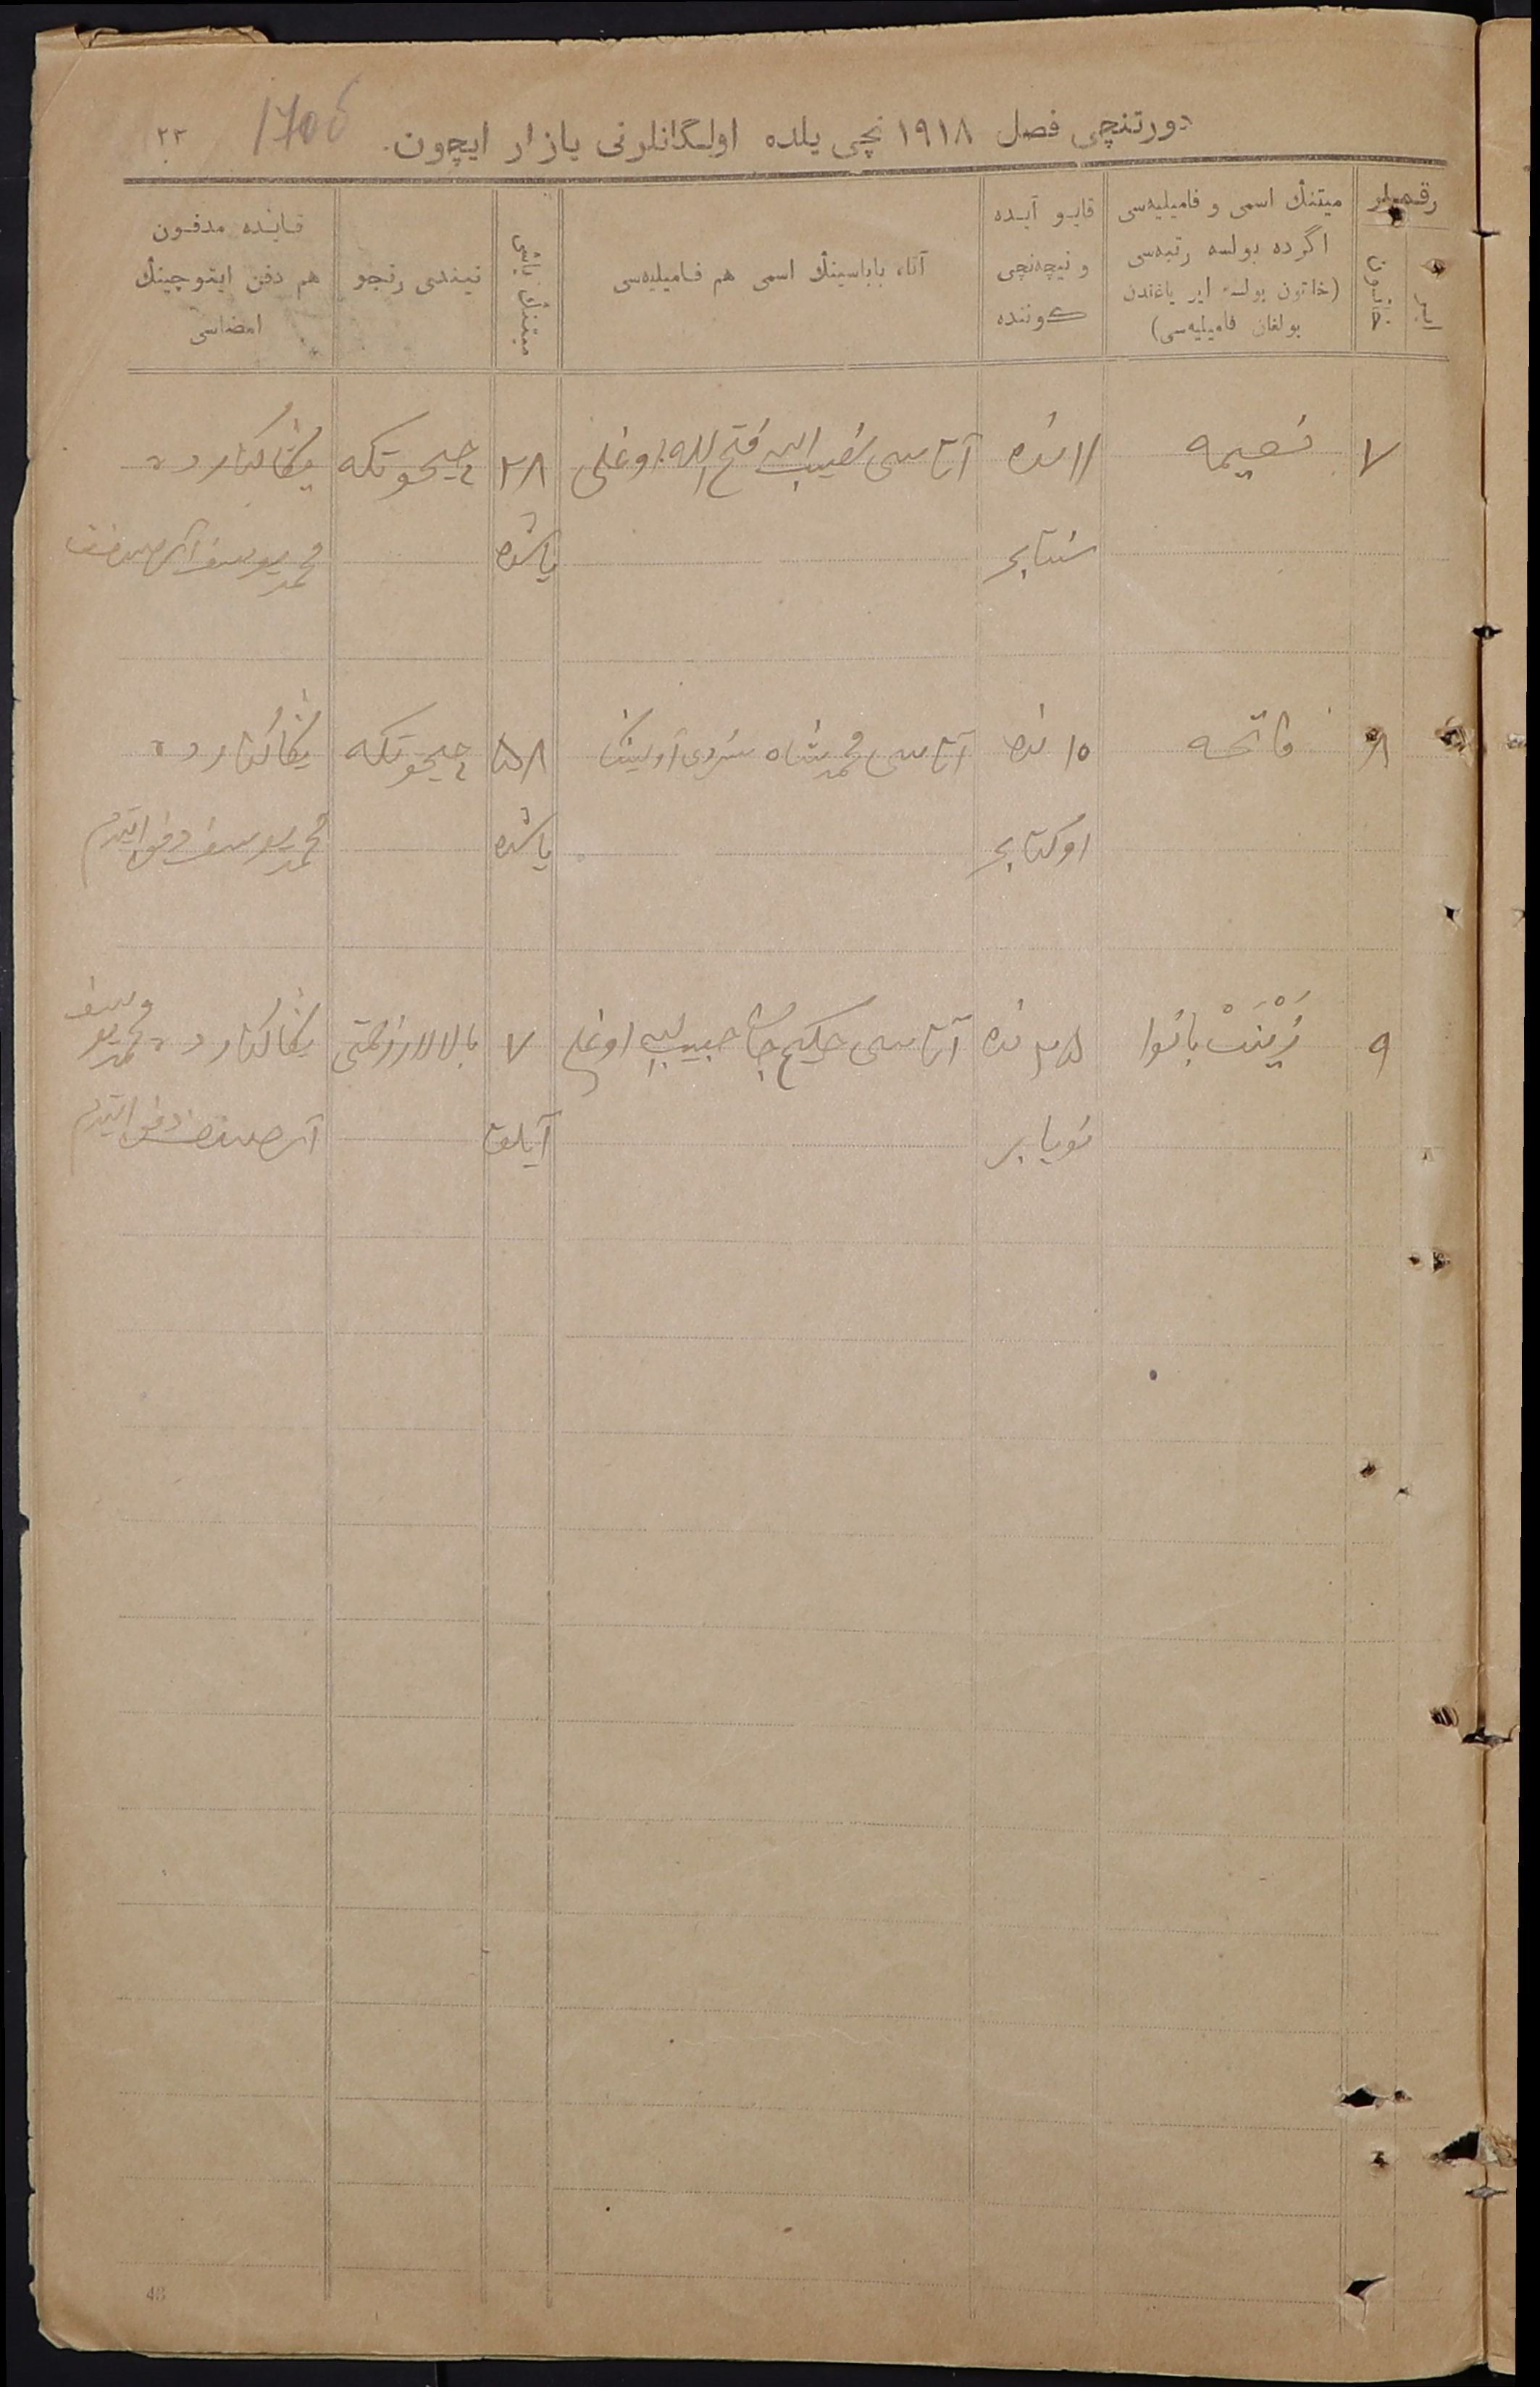 دورتنچی فصل ۱۹۱۸ نچی یلده اولگانلرنی یازار ایچون.
۲۳
رقملر
ایر
خاتون
میتنڭ اسمی و فامیلیه‌سی
اگرده بولسه رتبه‌سی
(خاتون بولسه ایر یاغندن
بولغان فامیلیه‌سی)
قایو آیده
و نیچه‌نچی
كوننده
آتا، باباسینڭ اسمی هم فامیلیه‌سی
میتنڭ یاشی
نیندی رنجو
قایده مدفون
هم دفن ایتوچینڭ
امضاسی
۷
نعیمه
۱۱ نده
سنتابر
آتاسی نصیب الله فتح الله اوغلی
۲۸
یاشده
چیحوتکه
محمد یوسف
۸
فاتحه
۱۵ نده
اوکتابر
آتاسی محمدشاه
۵۸
یاشده
چیحوتکه
محمد یوسف دفن ایتدم
۹
زَیْنَبْ بانوا
۲۵ نده
نویابر
آتاسی حکیم جان حبیب الله اوغلی
۷
آیلق
بالالار زحمتی
محمد یوسف
دفن ایتدم
48